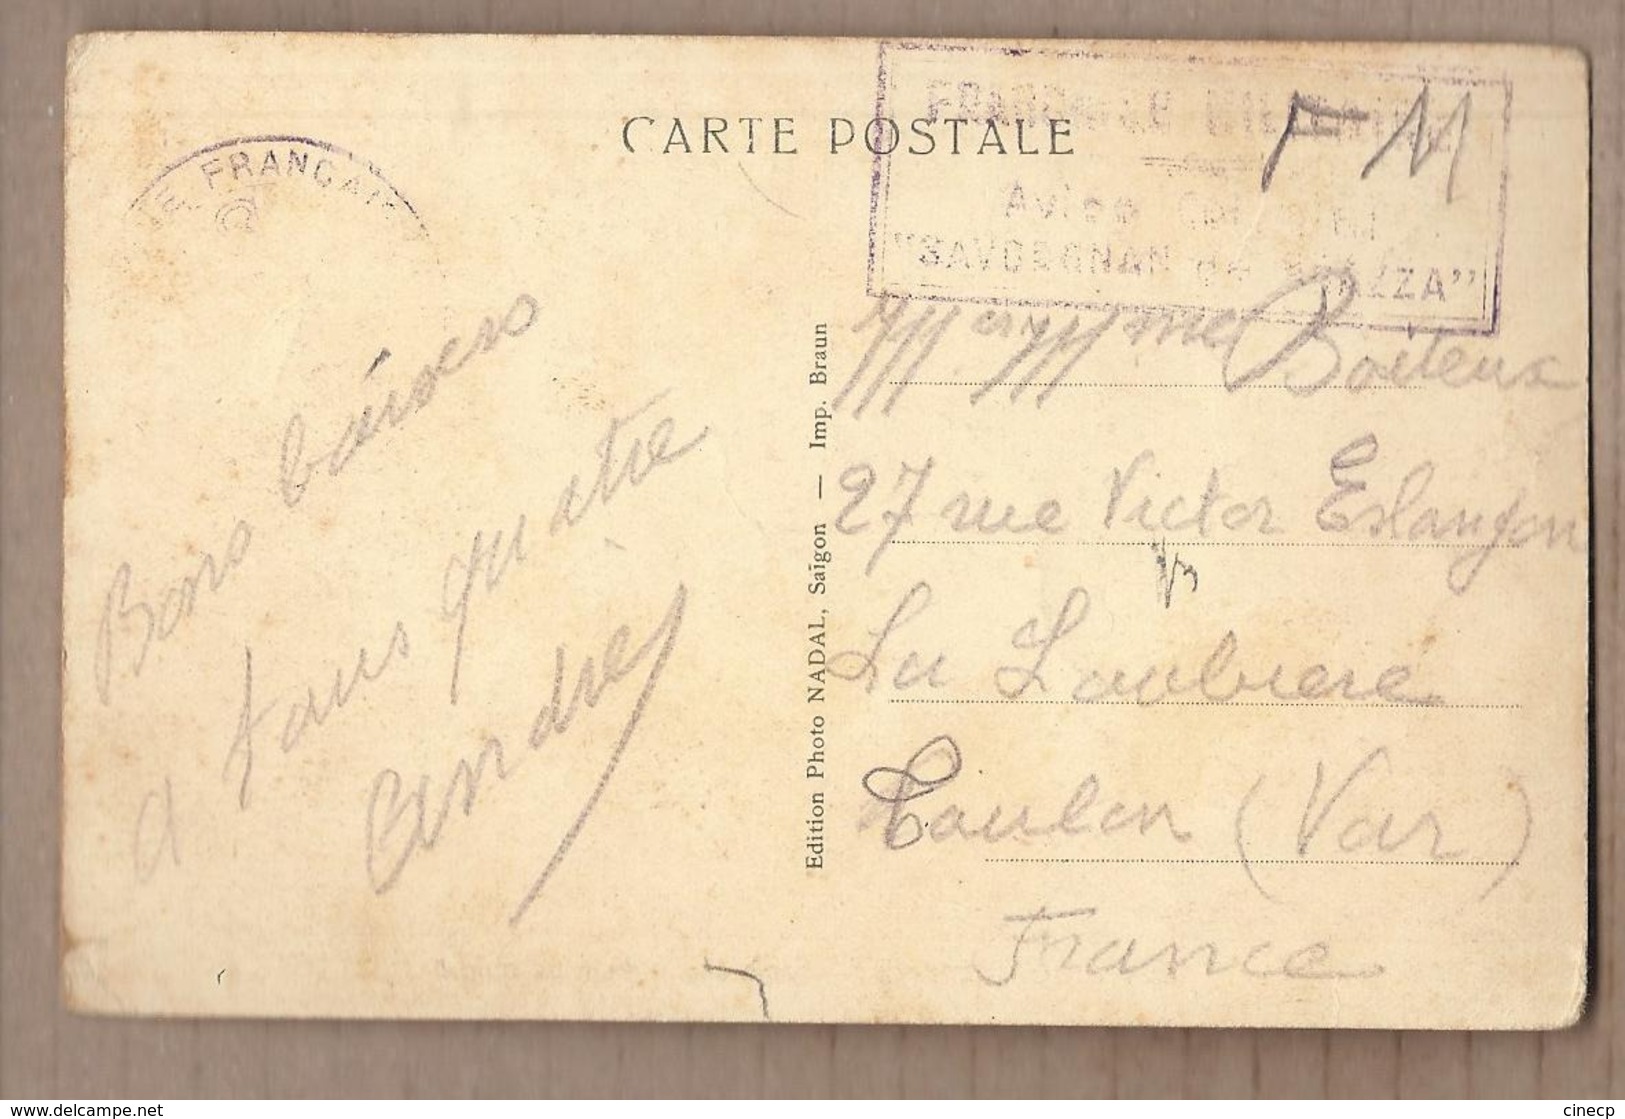 CARTE POSTALE
FRANCHISE MILITAIRE
Aviso Colonial
"SAVORGNAN de BRAZZA"
UE FRANÇAIS
Bons baisers
a tous quatre
André
Edition Photo NADAL, Saïgon — Imp. Braun
Mr et Mme Boiteux
27 rue Victor Eslangon
La Loubiere
Toulon (Var)
France
www.delcampe.net
cinecp